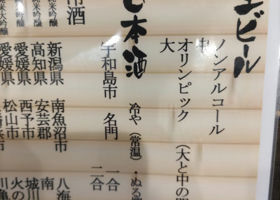 ビール
ノンアルコール
中
オリンピック（大と中の間
大
本酒 冷や（常温）・ぬる
宇和島市 名門 一合
二合
酒
新潟県 南魚沼市 八海
高知県 安芸郡 南
愛媛県 西予市 城川
愛媛県 松山市